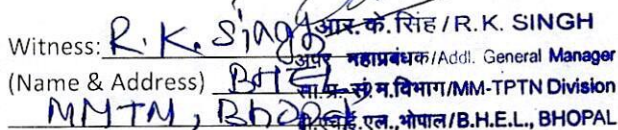 Witness: R. K. Singh आर. के. सिंह / R. K. SINGH
अपर महाप्रबंधक/Addl. General Manager
(Name & Address) BHEL सा.प्र.-सं.म.विभाग/MM-TPTN Division
MMTM, Bhopal बी.एच.ई.एल.,भोपाल/B.H.E.L., BHOPAL